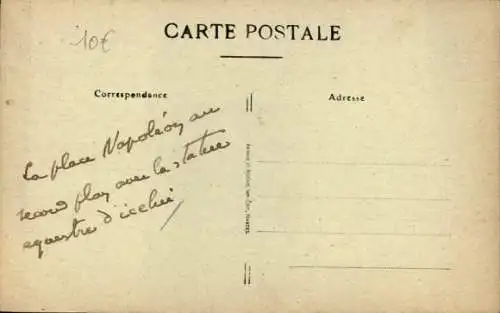 10€
CARTE POSTALE
Correspondance
Adresse
La place Napoléon au
second plan avec la statue
equestre d'icelui
NANTES